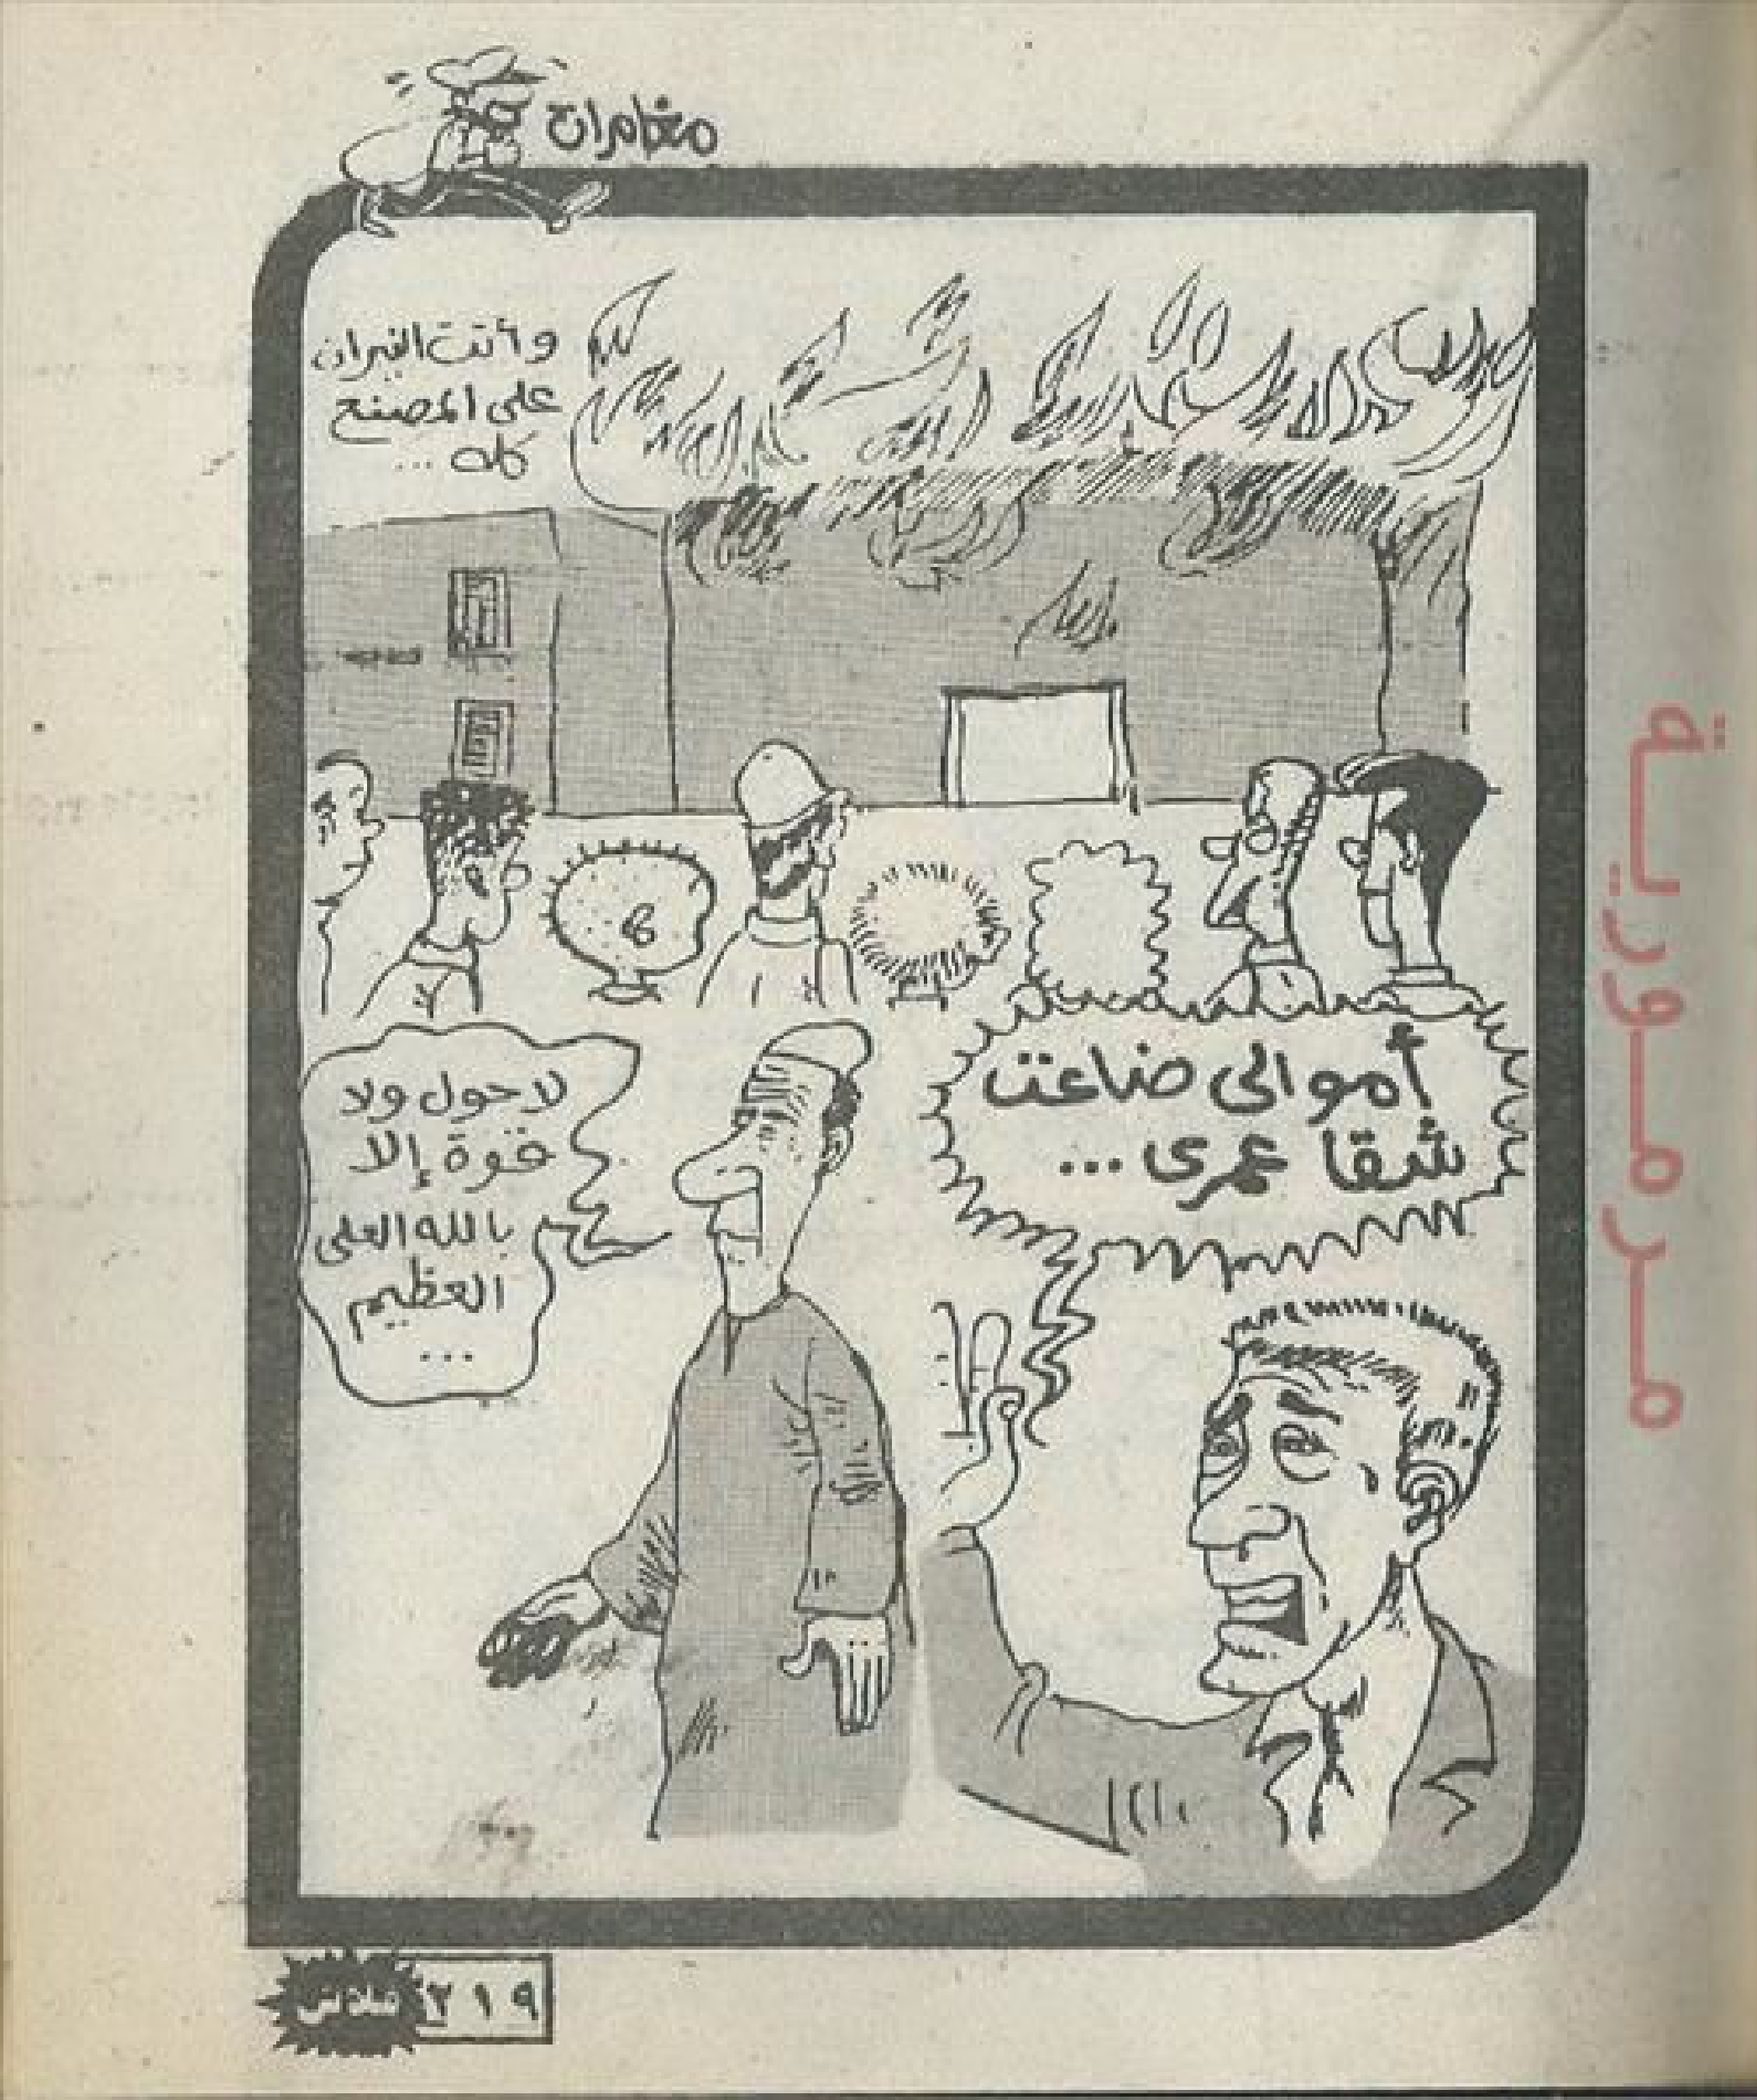 مغامرات
وأتت النيران
على المصنع
كله ...
أموالى ضاعت
شقا عمرى ...
لا حول ولا
قوة إلا
بالله العلى
العظيم
...
مرمورية
٢١٩
فلاش